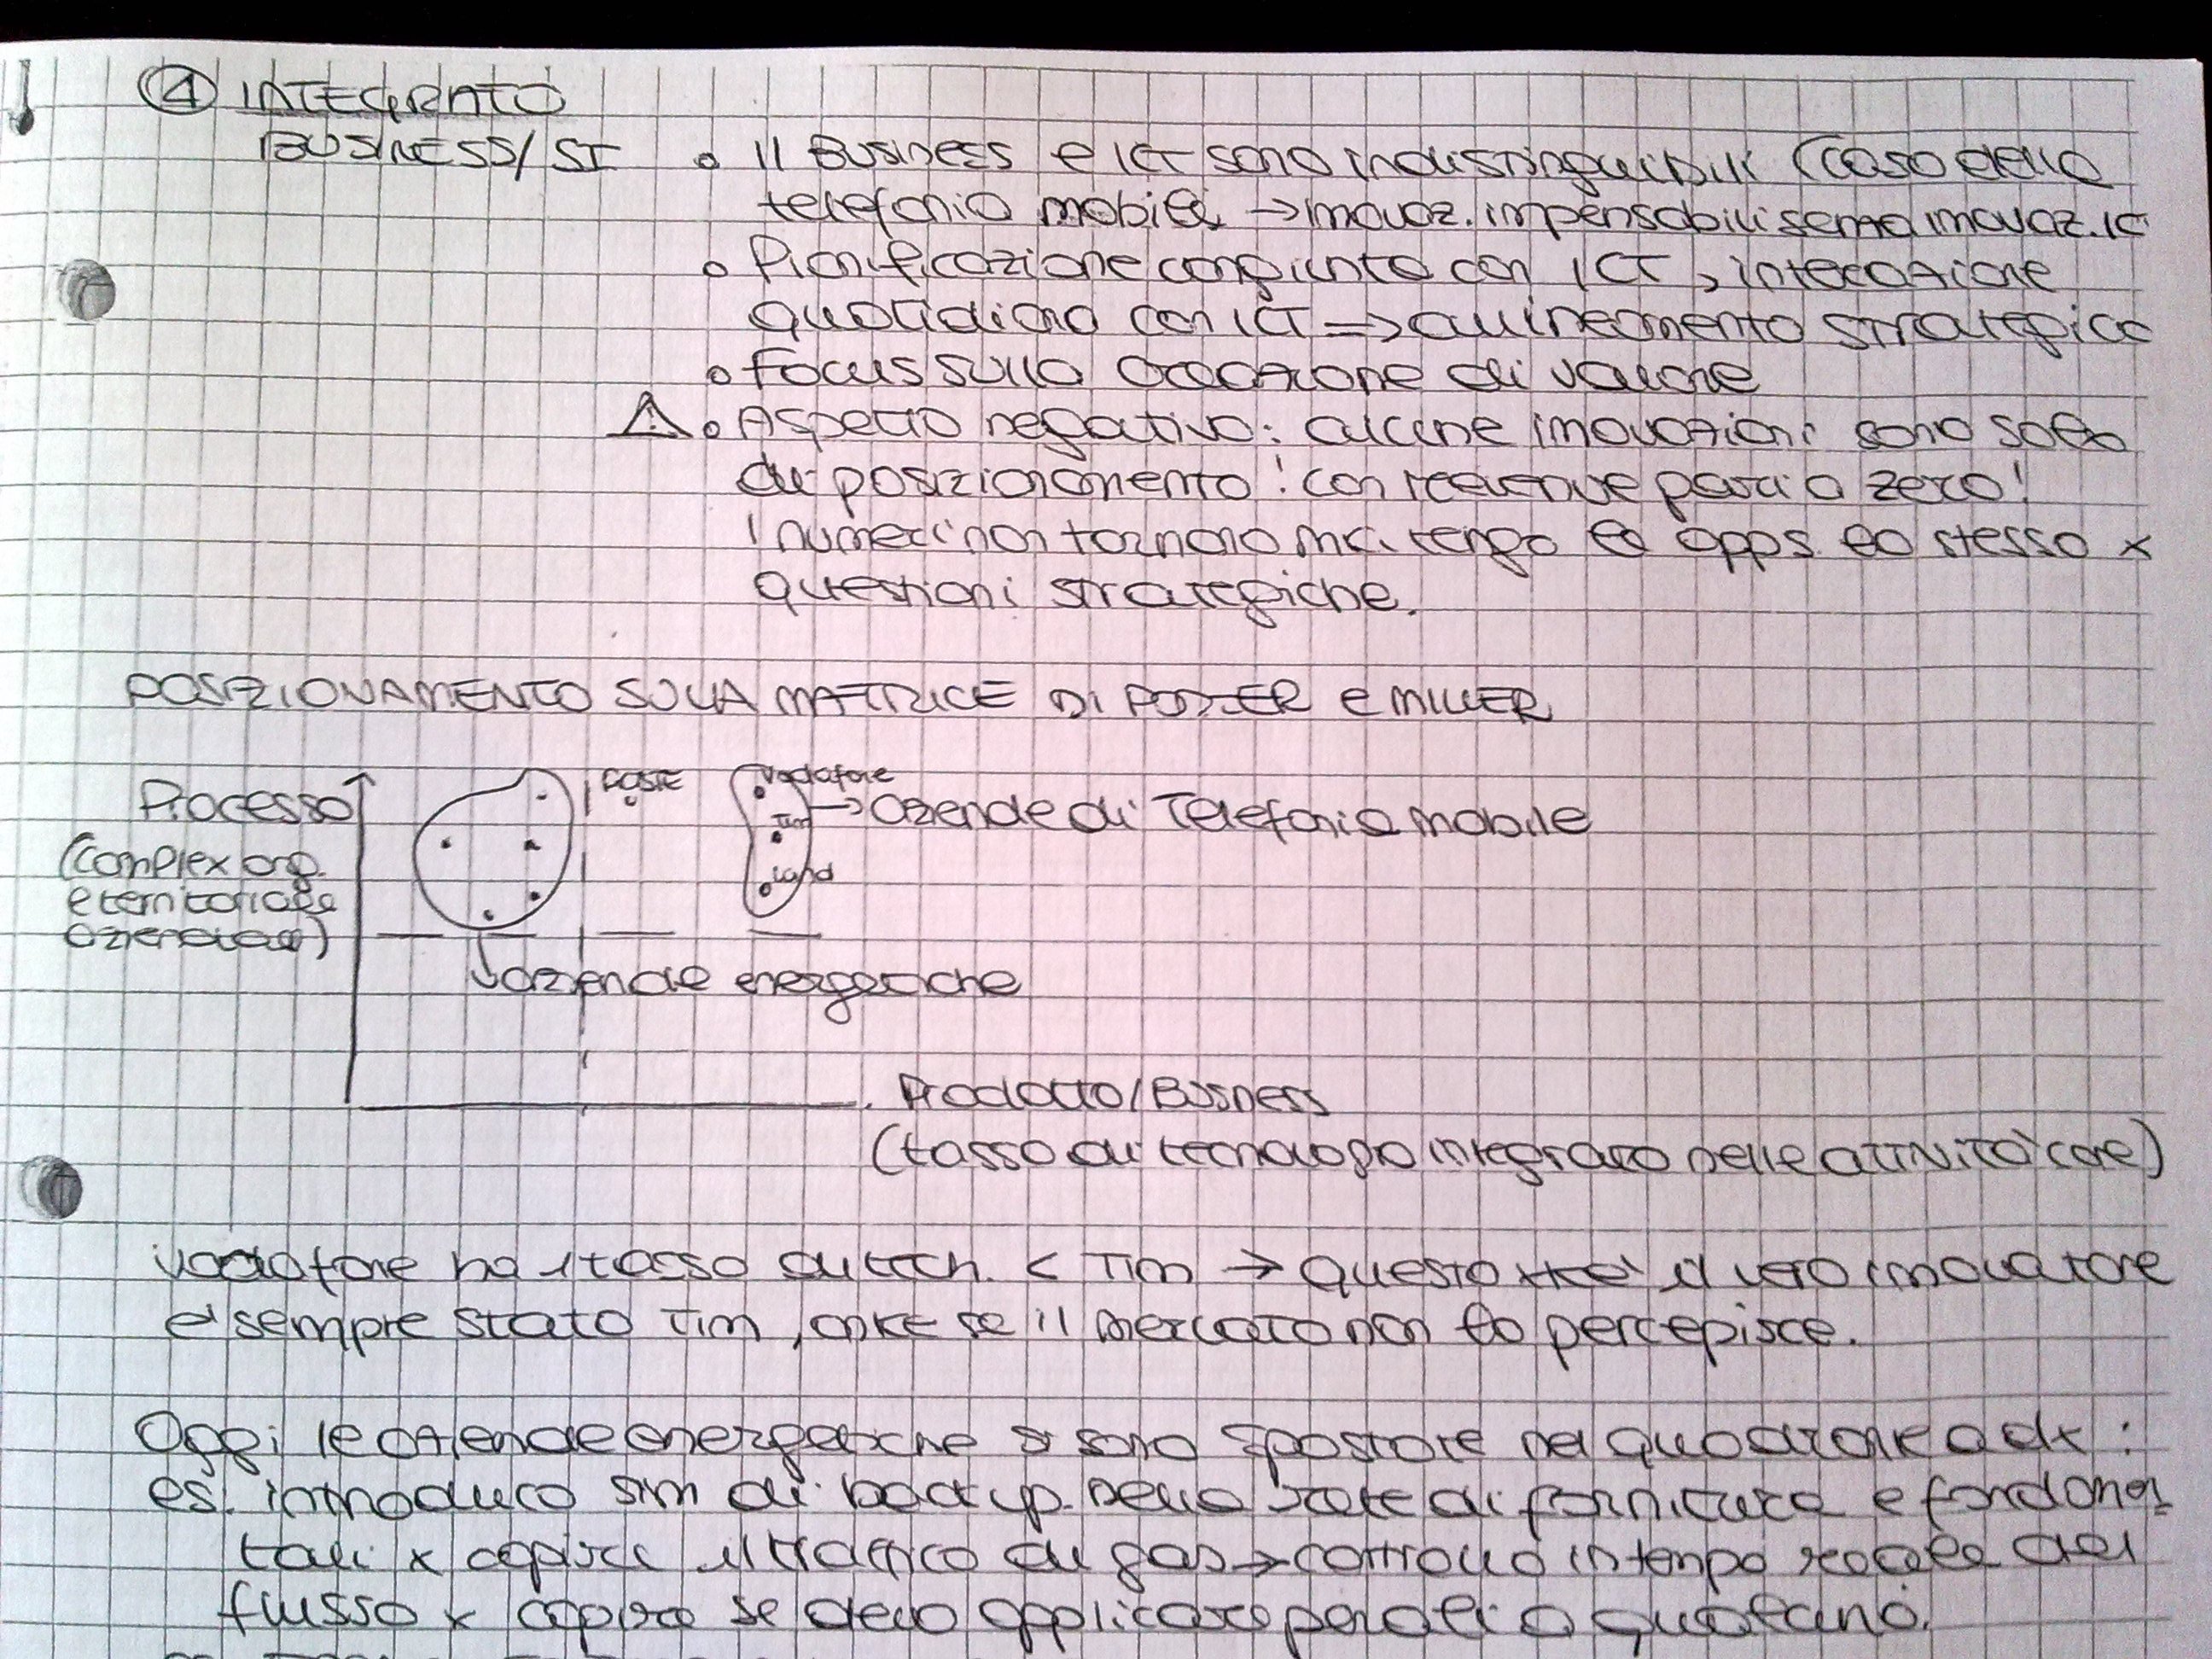 ④ INTEGRATO
BUSINESS/SI • Il Business e ICT sono indistinguibili (caso della
telefonia mobile → innovaz. impensabili senza innovaz. IC
• Pianificazione congiunta con ICT, interazione
quotidiana con ICT ⇒ allineamento strategico
• Focus sulla creazione di valore
⚠ • Aspetto negativo: alcune innovazioni sono solo
di posizionamento! con revenue pari a zero!
I numeri non tornano ma tengo le apps lo stesso x
questioni strategiche.
POSIZIONAMENTO SULLA MATRICE DI PORTER e MILLER
Processo
(complex org.
e territoriale
aziendale)
POSTE
Vodafone
Tim
Wind
→ aziende di Telefonia mobile
aziende energetiche
Prodotto/Business
(tasso di tecnologia integrato nelle attività core)
Vodafone ha 1 tasso di tech. < Tim → questo xké il vero innovatore
è sempre stato Tim, anke se il mercato non lo percepisce.
Oggi le aziende energetiche si sono spostate nel quadrante a dx:
es. introduco sim di backup nella rete di fornitura e fondamen
tali x capire il traffico di gas → controllo in tempo reale del
flusso x capire se devo applicare penali a qualcuno.